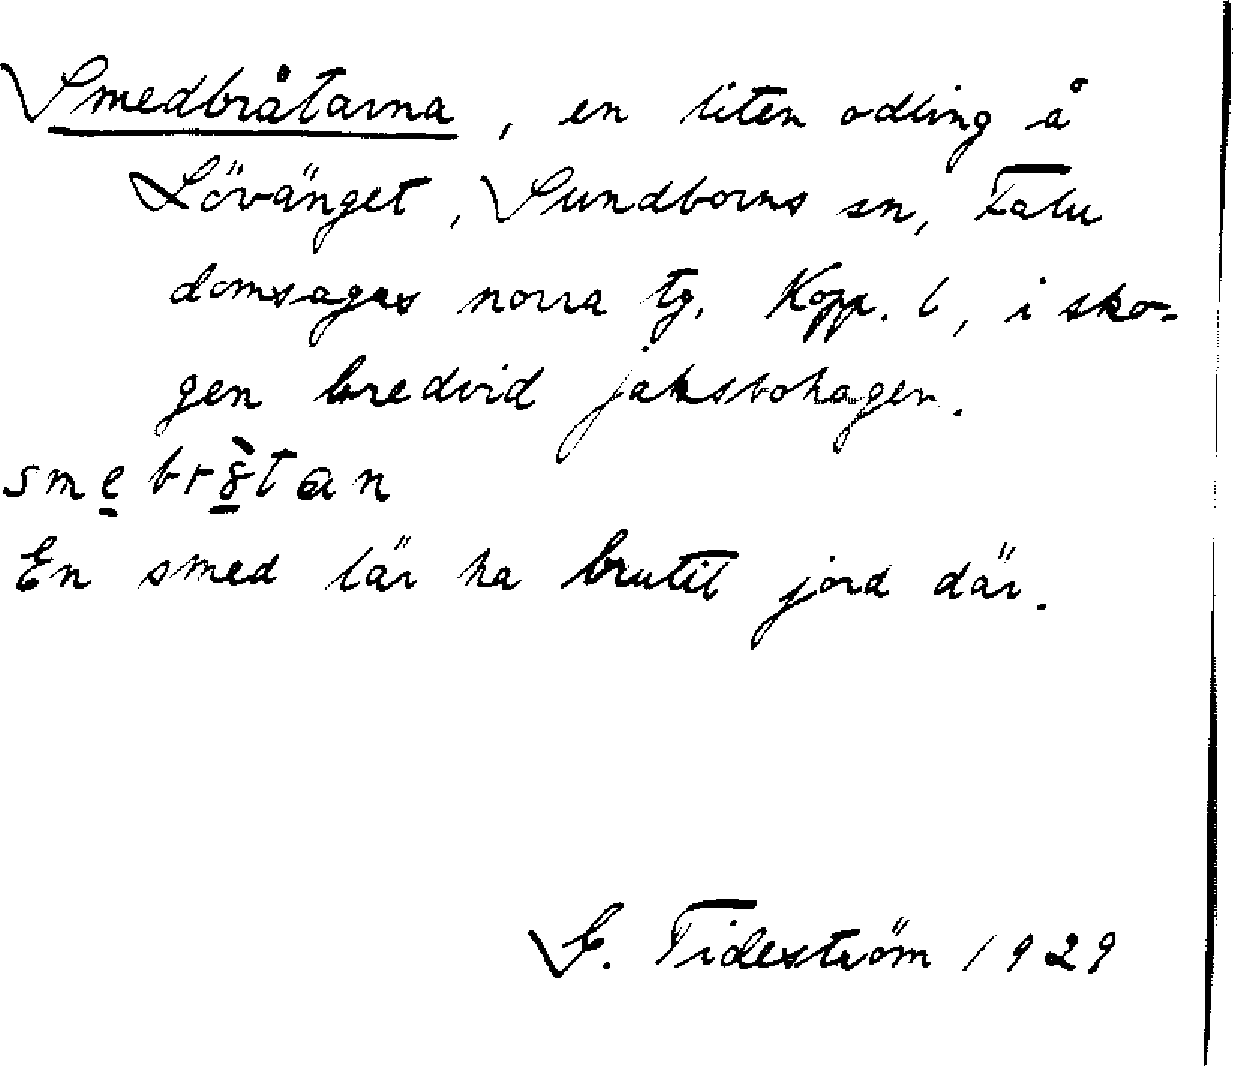 Smedbråtarna, en liten odling å
Lövänget, Sundborns sn, Falu
domsagas norra tg. Kopp. l, i sko-
gen bredvid jaksbohagen.
En smed lär ha brutit jord där.
G. Tideström 1929